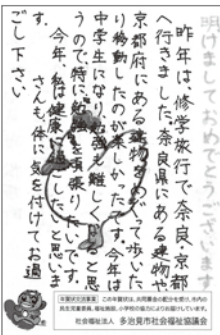 明けましておめでとうございます
昨年は、修学旅行で奈良、京都
へ行きました。奈良県にある建物や
京都府にある建物をめぐって歩いた
り移動したのが楽しかったです。今年は
中学生になり勉強も難しくなると思
うので特に勉強を頑張りたいです。
今年、私は健康に過したいと思いま
す。
さんも、体に気を付けてお過
ごし下さい
年賀状交流事業 この年賀状は、共同募金の配分を受け、市内の
民生児童委員、福祉施設、小学校の協力によりお届けしています。
社会福祉法人 多治見市社会福祉協議会